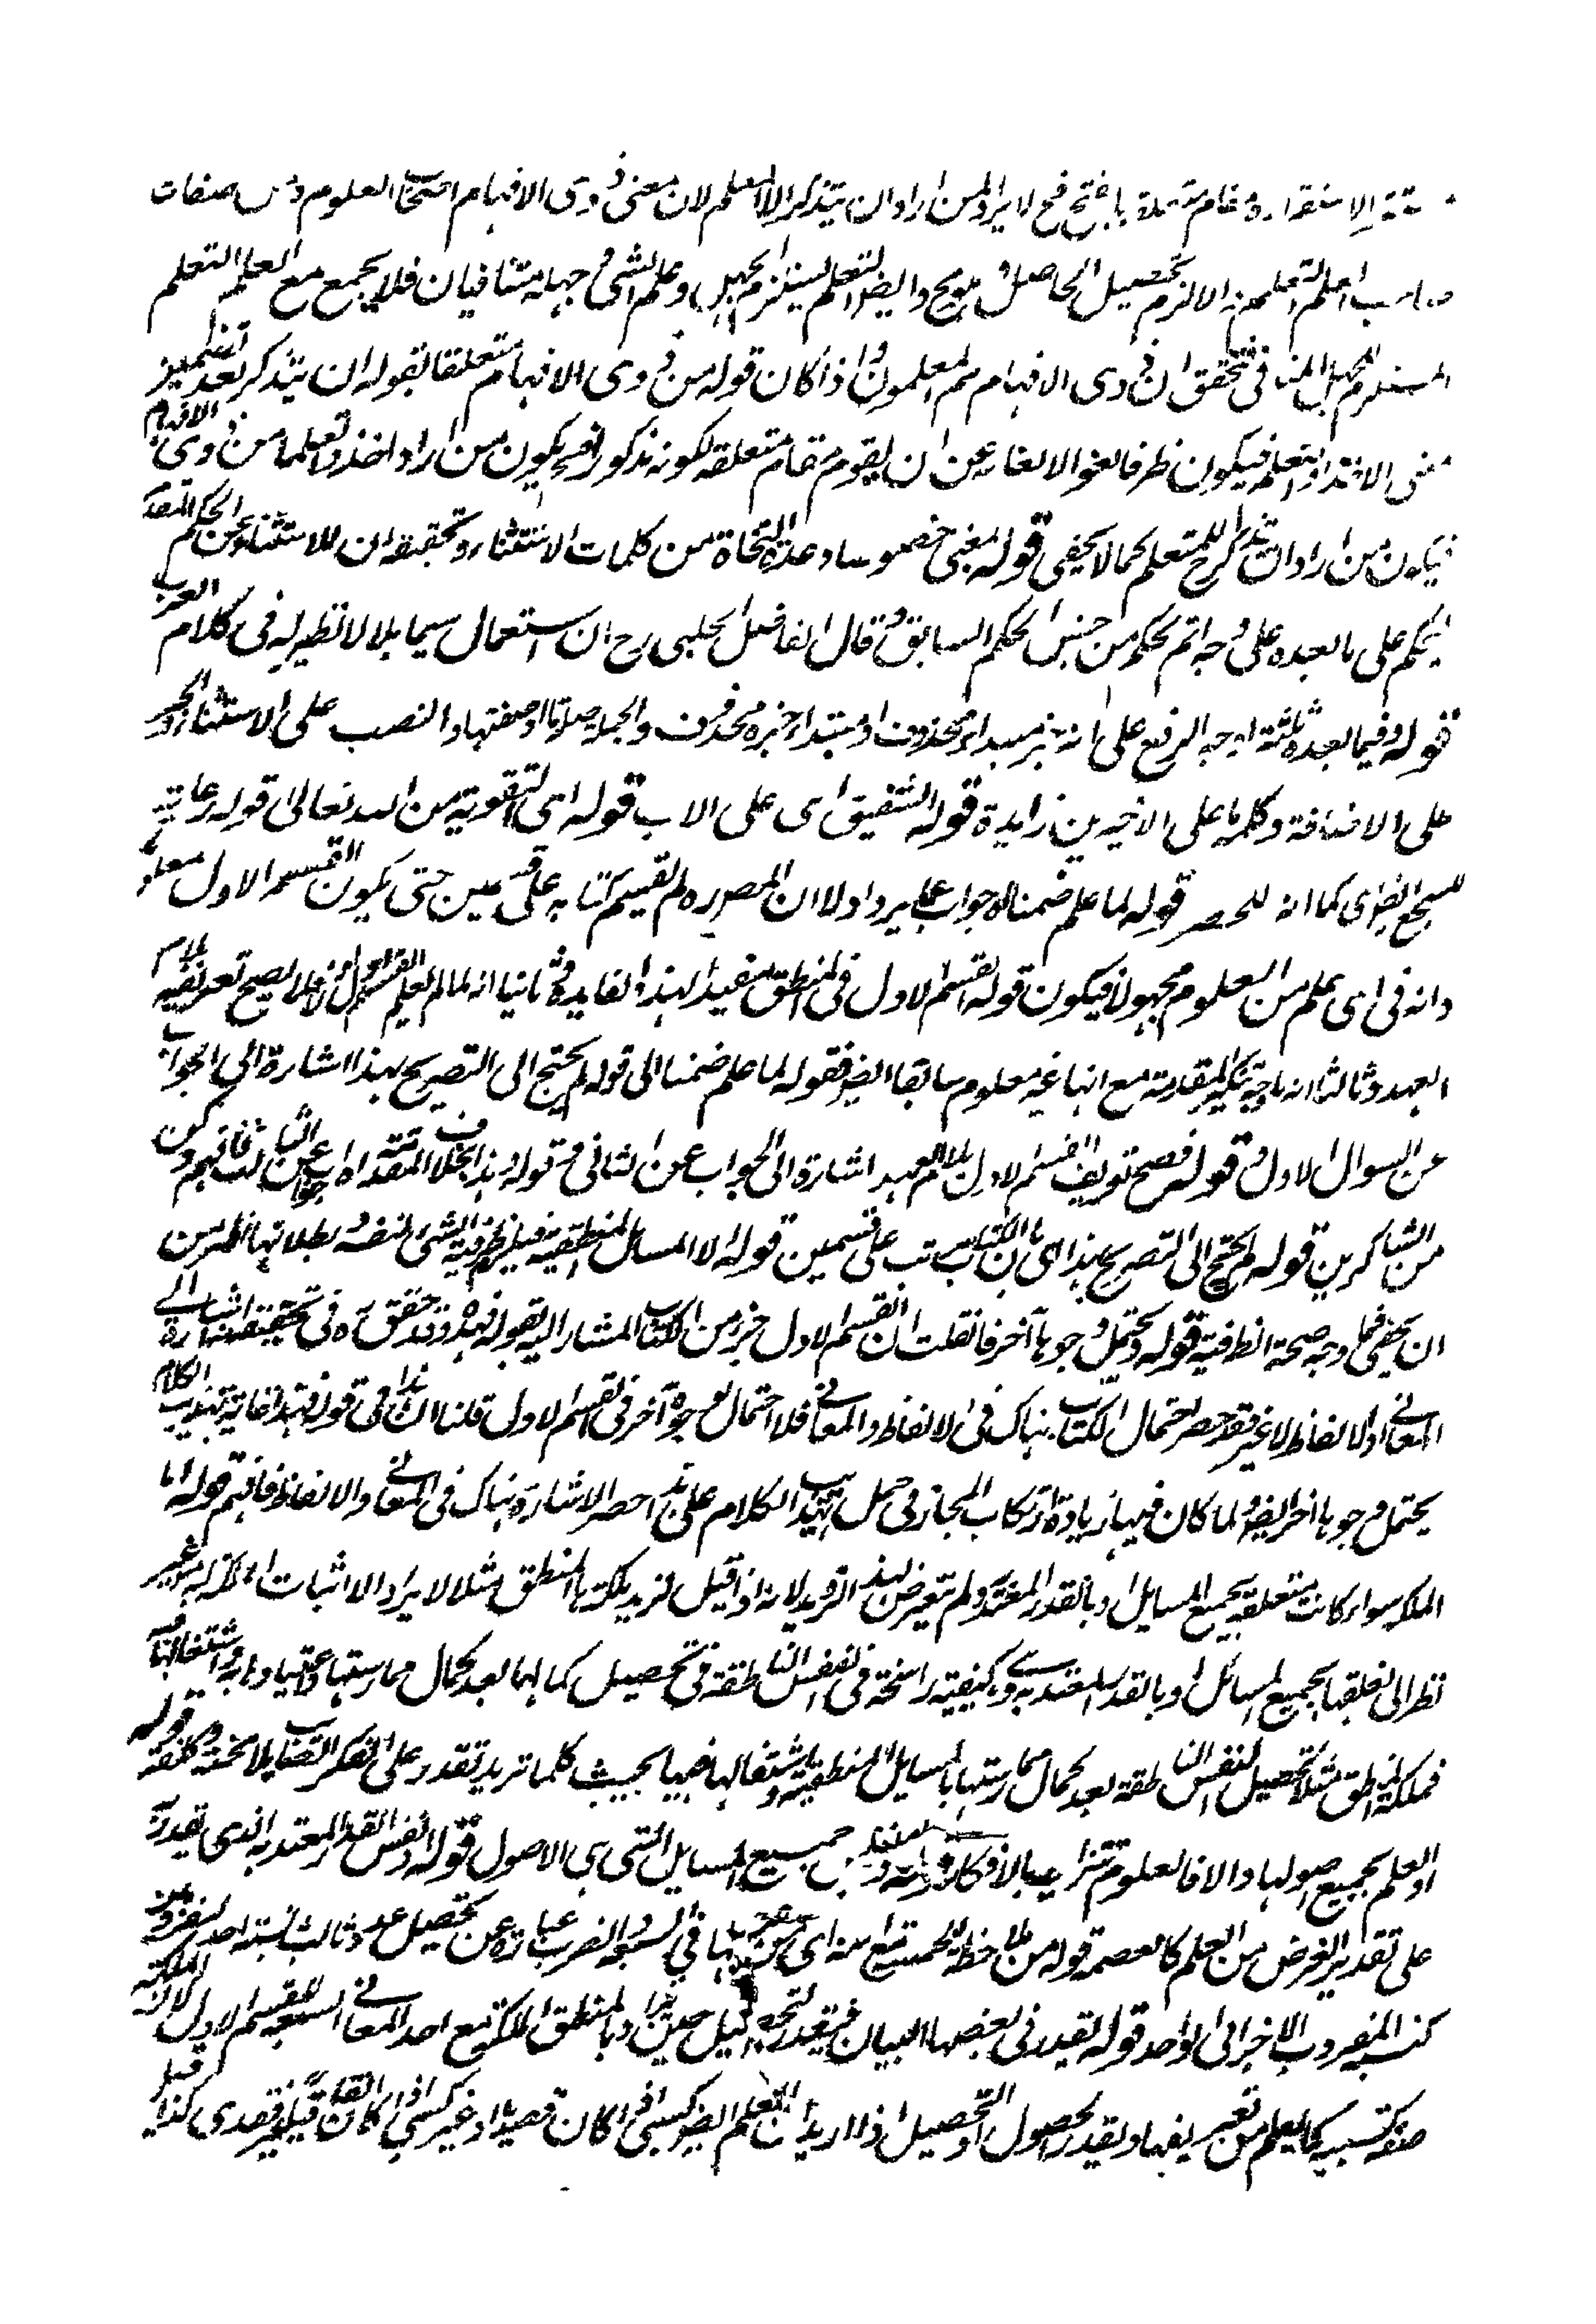 فح لا يرد لمن اراد ان يتذكر الا المعلم لان معنى ذوى الافهام اصحاب العلوم
تحصيل الحاصل وايضا التعلم يستلزم الجهل وعلم الشئ وجهله متنافيان فلا يجمع مع العلم التعلم
المستلزم للجهل المنافى فتحقق ان ذوى الافهام هم المعلمون واذا كان قوله من ذوى الافهام متعلقا بقوله ان يتذكر بعد تضمين
معنى الاخذ او التعلم فيكون ظرفا لغوا لالغائه عن ان يقوم مقام متعلقه لكونه مذكورا فح يكون من اراد اخذا وتعلما من ذوى الافهام
فيكون من اراد ان يتذكر المتعلم كما لا يخفى قوله بمعنى خصوصا وعده النحاة من كلمات الاستثناء وتحقيقه ان للاستثناء عن الحكم المتقدم
ليحكم على ما بعده على وجه اتم بحكم من جنس الحكم السابق وقال الفاضل الحلبى رح ان استعمال سيما بلا لا نظير له فى كلام العرب
قوله وفيما بعده ثلثة اوجه الرفع على انه خبر مبتداء محذوف او مبتداء خبره محذوف والجملة صلة ما او صفتها والنصب على الاستثناء والجر
على الاضافة وكلمة ما على الاخيرين زايدة قوله الشفيق اى على الاب قوله اى التقوية من الله تعالى قوله رعاية
للسجع ايضا اى كما انه للحصر قوله لما علم ضمنا اه جواب عما يرد اولا ان المصره لم يقسم كتابه على قسمين حتى يكون القسم الاول معلوما
وانه فى اى علم من العلوم مجهولا فيكون قوله القسم الاول فى المنطق مفيدا لهذا الفايدة وثانيا انه لما لم يعلم القسم الاول فلا يصح تعريفه بلام
العهد وثالثا انه ما وجه تنكير المقدمة مع انها غير معلوم سابقا ايضا فقوله لما علم ضمنا الى قوله لم يحتج الى التصريح بهذا اشارة الى الجواب
عن السوال الاول وقوله فصح تعريف القسم الاول بلام العهد اشارة الى الجواب عن الثانى وقوله وهذا بخلاف المقدمة اه جواب عن الثالث فافهم وكن
من الشاكرين قوله لم يحتج الى التصريح بهذا اى بان الكتاب مرتب على قسمين قوله الا المسائل المنطقية فيلزم ظرفية الشئ لنفسه وبطلانها اظهر من
ان يخفى فما وجه صحة الظرفية قوله ويحتمل وجوها آخر فان قلت ان القسم الاول جزء من الكتاب المشار اليه بقوله فهذا وقد حقق ره فى تحقيقه ان هذا اشارة الى
المعانى او الالفاظ لا غير فقد حصر احتمال الكتاب هناك فى الالفاظ والمعانى فلا احتمال لوجوه آخر فى القسم الاول قلنا ان هذا فى قوله فهذا غاية تهذيب الكلام
يحتمل وجوها اخر ايضا ولما كان فيها زيادة ارتكاب المجاز فى حمل تهذيب الكلام على هذا حصر الاشارة هناك فى المعانى والالفاظ فافهم قوله اما
الملكة سواء كانت متعلقة بجميع المسايل او بالقدر المعتد به ولم يتعرض لهذا الترديد لانه اذا قيل لزيد ملكة بالمنطق مثلا لا يراد الا اثبات الملكة له من غير
نظر الى تعلقها بجميع المسائل او بالقدر المعتد به وهى كيفية راسخة فى النفس الناطقة فى تحصيل كمالها بعد كمال ممارستها واعتيادها به واشتغالها فيه
فملكة المنطق مثلا تحصيل للنفس الناطقة بعد كمال ممارستها بالمسايل المنطقية واشتغالها فيها بحيث كلما تريد تقدر على الفكر الصايب بلا محنة وكلفة قوله
او العلم بجميع اصولها والا فالعلوم تتزايد بالافكار جميع المسايل التى هى الاصول قوله او نفس القدر المعتد به الذى يقدر به
على تقدير الغرض من العلم كالعصمة قوله من ملاحظة الخمسة مع سنة اى من ضربها فى السبعة والضرب عبارة عن تحصيل عدد ثالث نسبته احد المضروبين
كنسبة المضروب الاخر الى الواحد قوله يقدر فى بعضها البيان فيقدر التحصيل حين اريد بالمنطق الملكة مع احد المعانى السبعة للقسم الاول لان الملكة
صفة كسبية كما يعلم من تعريفها ويقدر الحصول او التحصيل اذا اريد ان العلم ايضا كسبى اذا كان قصديا او غير كسبى اذا كان القائل قبله غير قصدى كذا قيل